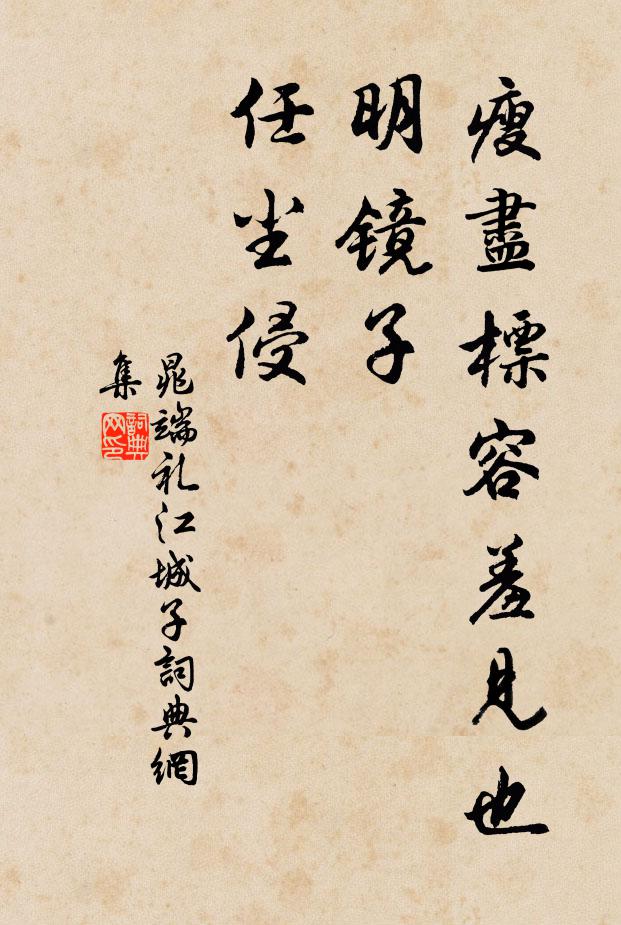 瘦盡標容羞見也
明鏡子
任尘侵
晁端礼江城子詞典網
集
詞典
网印